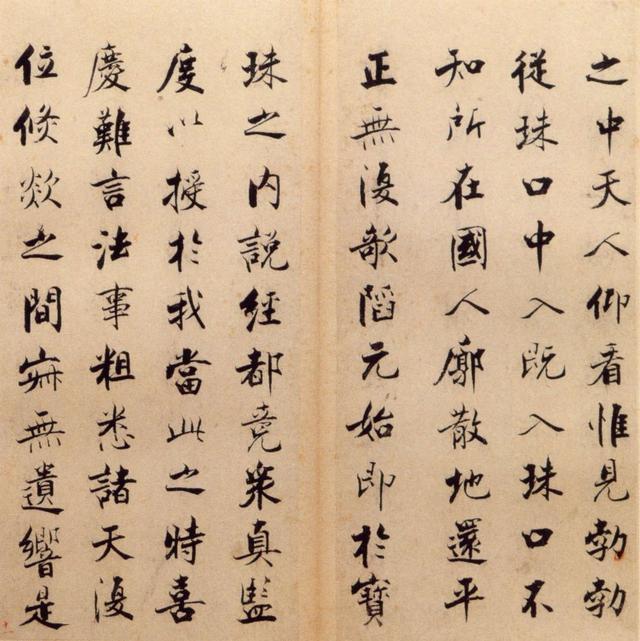 之中天人仰看惟見勃勃
從珠口中入既入珠口不
知所在國人廓散地還平
正無復欹陷元始即於寶
珠之内說經都竟衆真監
度以授於我當此之時喜
慶難言法事粗悉諸天復
位倏欻之間寂無遺響是